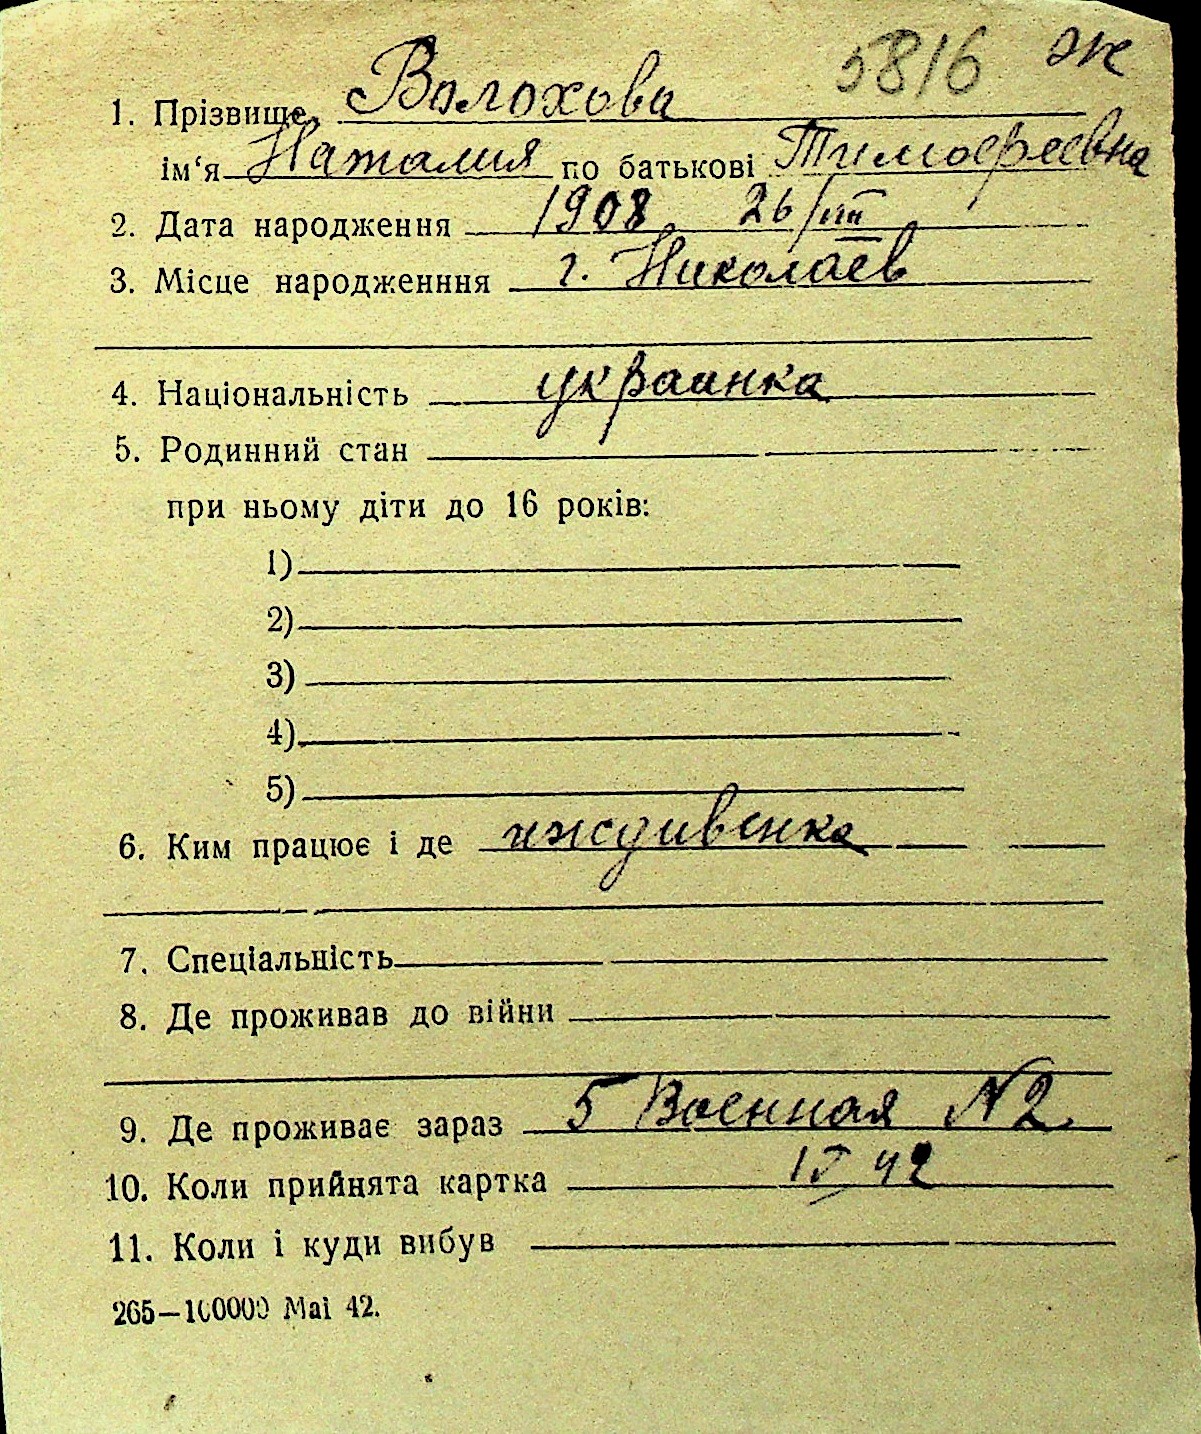 5816 ж
1. Прізвище Волохова
ім‘я Наталия по батькові Тимофеевна
2. Дата народження 1908 26/VIII
3. Місце народженння г. Николаев
4. Національність украинка
5. Родинний стан
при ньому діти до 16 років:
1)
2)
3)
4)
5)
6. Ким працює і де иждивенка
7. Спеціальність
8. Де проживав до війни
9. Де проживає зараз 5 Военная №2
10. Коли прийнята картка 42
11. Коли і куди вибув
265—100000 Маі 42.